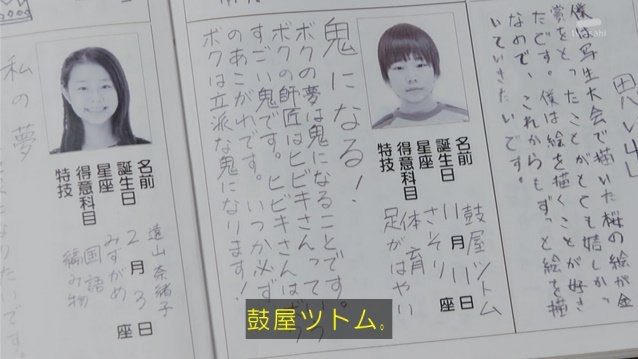 僕は写生大会で描いた桜の絵が金
賞をとったことがとても嬉しかっ
たです。僕は絵を描くことが好き
なので、これからもずっと絵を描
いていきたいです。
名前 鼓屋ツトム
誕生日 11月11日
星座 さそり座
得意科目 体育
特技 足がはやい
鬼になる!
ボクの夢は鬼になることです。
ボクの師匠はヒビキさんって
すごい鬼です。ヒビキさんはボク
のあこがれです。いつか必ず
ボクは立派な鬼になります!
名前 遠山奈緒子
誕生日 2月3日
星座 みずがめ座
得意科目 国語
特技 編み物
私の夢
鼓屋ツトム。